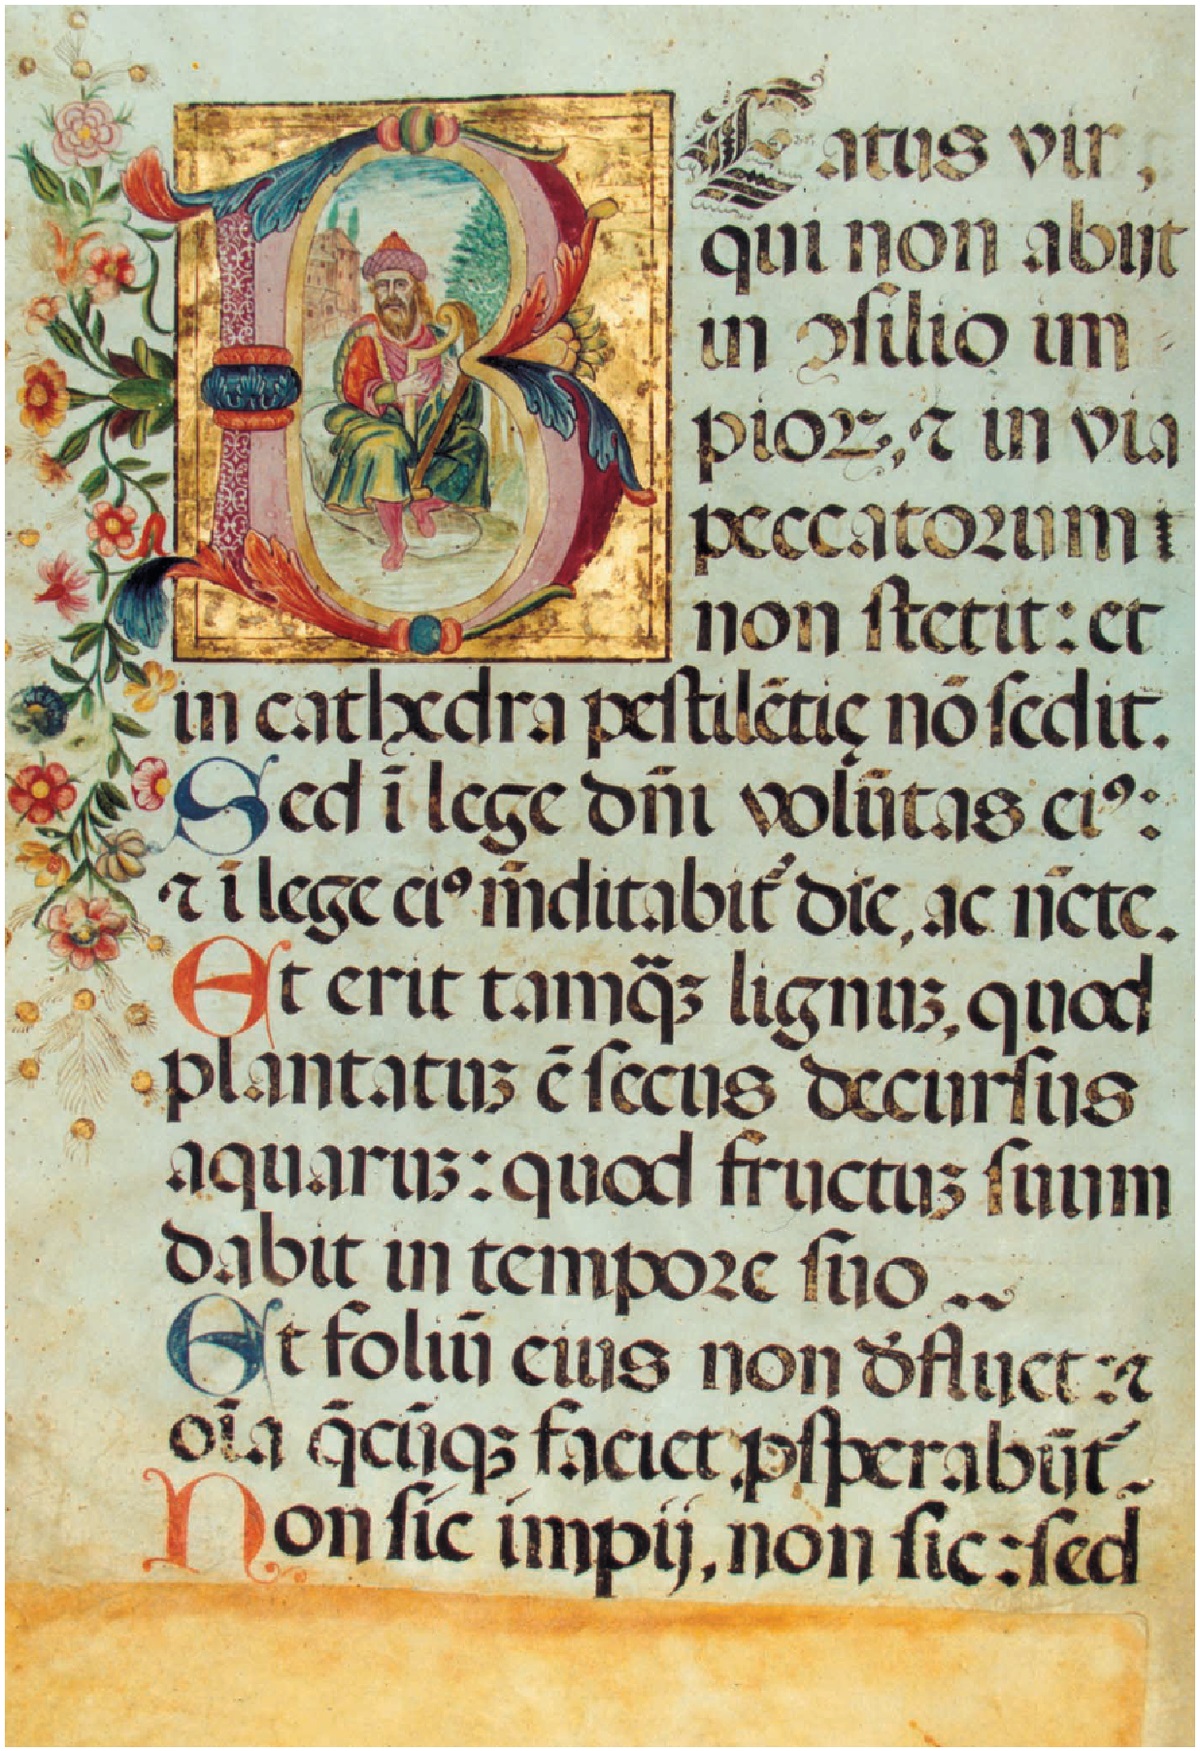 Beatus vir,
qui non abijt
in ꝯsilio im
pioꝝ, ⁊ in via
peccatorum
non stetit: et
in cathedra pestilētię nō sedit.
Sed ī lege dn̄i volūtas eiꝰ:
⁊ ī lege eiꝰ m̄ditabit᷑ die, ac n̄cte.
Et erit tamq̄ꝫ lignuꝫ, quod
plantatuꝫ ē secus decursus
aquaruꝫ: quod fructuꝫ suum
dabit in tempore suo
Et foliū eius non d̄fluet: ⁊
oīa q̄cūqꝫ faciet ꝓsperabūt᷑.
Non sic impij, non sic: sed